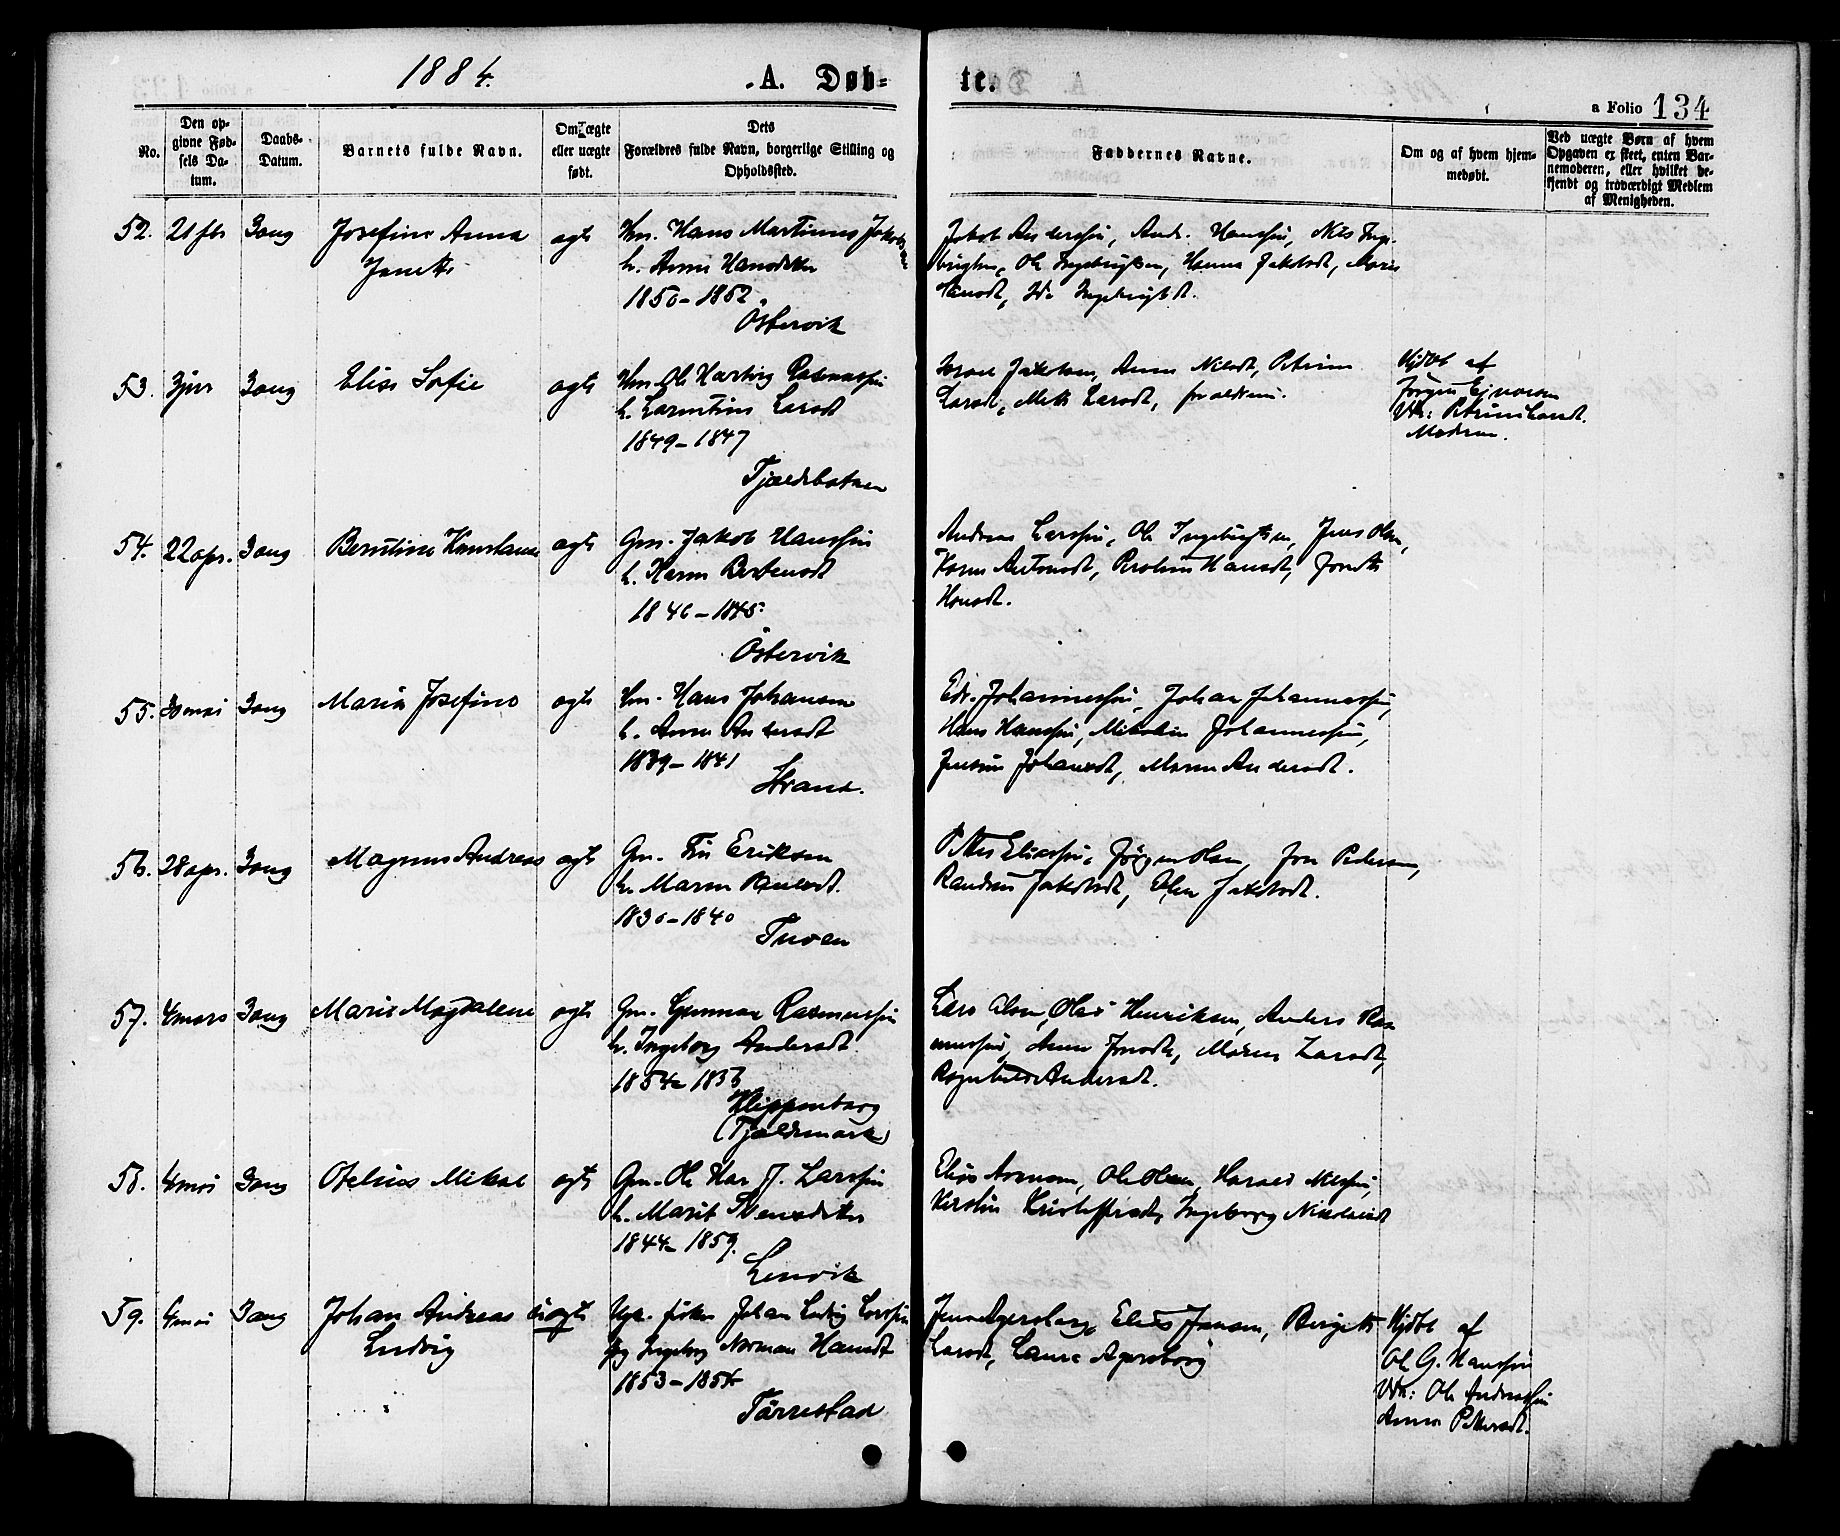 1884.
A. Døb-
te.
a Folio 134
No.
Den op-
givne Fød-
sels Da-
tum.
Daabs-
Datum.
Barnets fulde Navn.
Om ægte
eller uægte
født.
Dets
Forældres fulde Navn, borgerlige Stilling og
Opholdssted.
Faddernes Navne.
Om og af hvem hjem-
medøbt.
Ved uægte Børn af hvem
Opgaven er skeet, enten Bar-
nemoderen, eller hvilket be-
kjendt og troværdigt Medlem
af Menigheden.
52. 21 feb 3 aug Josefine Anna
Janette
ægte
Hm. Hans Martinus Jakobsen
h. Anne Hansdatter
1850 - 1852.
Östervik
Jakob Anderssen, Andr. Hanssen, Nils Inge-
brigtsen, Ole Ingebrigtsen, Hanna Jakobsdt, Maria
Hansdt, Ida Ingebrigtsdt.
53. 3 jun 3 aug Elise Sofie ægte
Hm. Ole Hartvig Rasmussen
h. Larentine Larsdt
1849 - 1847
Tjældebotnen
Jakobsen, Anne Nilsdt, Petrine
Larsdt, Mette Larsdt, forældrene.
Hjdbt af
Jørgen Ejnarsen
Vdn: Petrine Larsdt.
Moderen.
54. 22 apr. 3 aug Berntine Konstanse ægte
Gm. Jakob Hanssen
h. Karen Berteusdt
1846 - 1845
Östervik
Andreas Larssen, Ole Ingebrigtsen, Jens Olsen,
Karen Antonsdt, Hansdt, Janette
Hansdt.
55. 30 mai 3 aug Maria Josefine ægte
Hm. Hans Johansen
h. Anne Andersdt
1839 - 1841
Strand.
Edv. Johannessen, Johan Johannessen,
Hans Hanssen, Mikolai Johannessen,
Jensine Johansdt, Maren Andersdt.
56. 28 apr. 3 aug Magnus Andreas ægte
Gm. Eriksen
h. Maren Paulsdt.
1830 - 1840
Tuven
Petter Eliassen, Jørgen Olsen, Jon Pedersen,
Jakobsdt, Elen Jakobsdt.
57. 4 mars 3 aug Marie Magdalene ægte
Gm. Gunnar Rasmussen
h. Ingeborg Andersdt
1854 - 1856
Klippenborg
(Tjældemark)
Lars Olsen, Olai Henriksen, Anders Ras-
mussen, Anne Jonsdt, Maren Larsdt,
Ragnhild Andersdt.
58. 4 mai 3 aug Otelius Mikal ægte
Gm. Ole Har. J. Larssen
h. Marit Svensdatter
1844 - 1859.
Lenvik
Elias Arnesen, Ole Olsen, Harald Nilssen,
Kirstine Kristoffersdt, Ingeborg Nikolaisdt
59. 4 mai 3 aug Johan Andreas
Ludvig
uægte
Ugk. fisker Johan Ludvig Larssen
Pg Ingeborg Norman Hansdt
1853 - 1854
Tårrestad
Jens Agersborg, Elias Jensen, Birgitte
Larsdt, Laura Agersborg
Hjdbt af
Ole G. Hanssen
Vdn: Ole Andreassen
Anna Pettersdt.